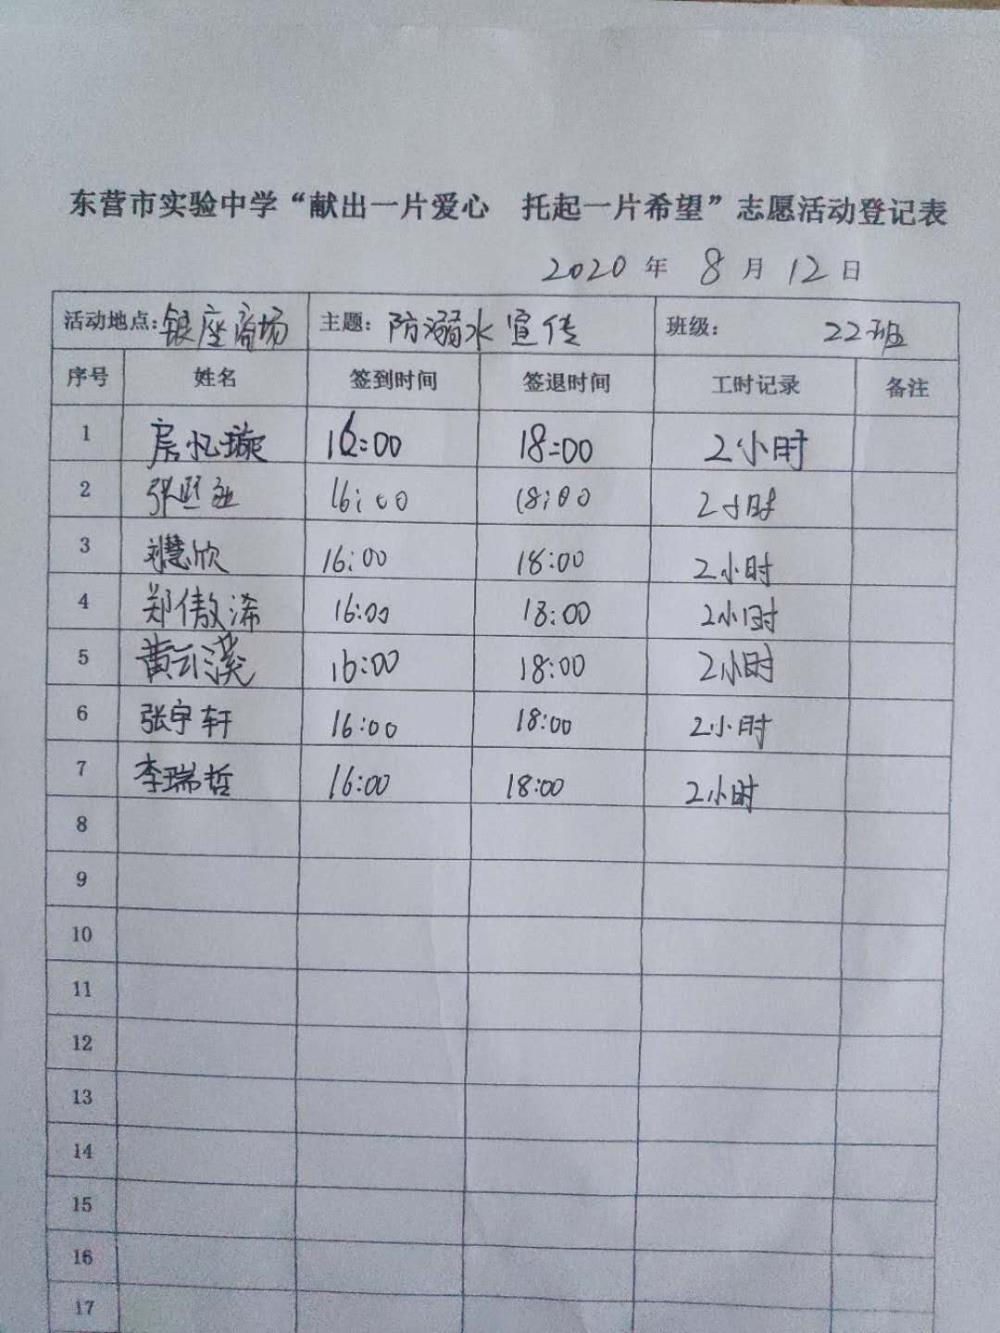 东营市实验中学“献出一片爱心 托起一片希望”志愿活动登记表
2020 年 8 月 12 日
活动地点：银座商场 主题：防溺水宣传 班级： 22班
序号 姓名 签到时间 签退时间 工时记录 备注
1 房忆璇 16:00 18:00 2小时
2 张 16:00 18:00 2小时
3 刘慧欣 16:00 18:00 2小时
4 郑傲浠 16:00 18:00 2小时
5 黄云溪 16:00 18:00 2小时
6 张宇轩 16:00 18:00 2小时
7 李瑞哲 16:00 18:00 2小时
8
9
10
11
12
13
14
15
16
17